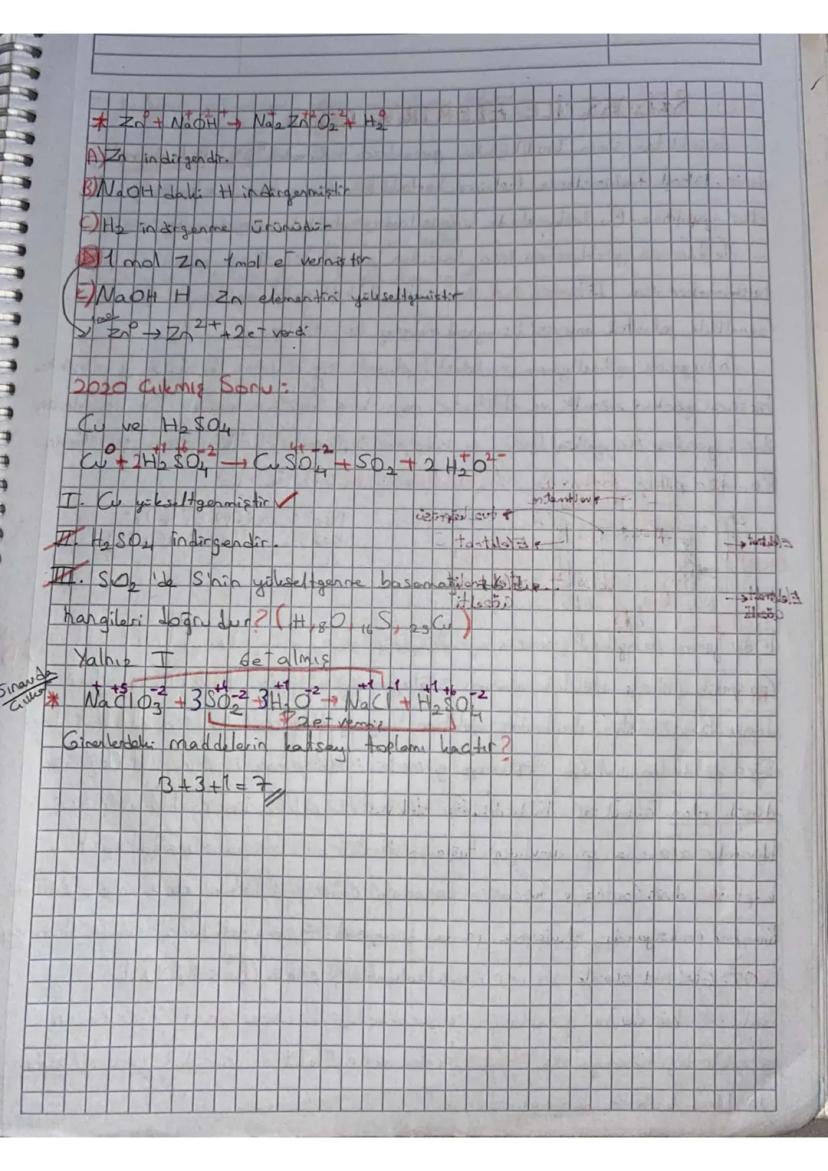 * Zn⁰ + Na⁺OH⁺ → Na₂⁺ Zn⁺²O₂⁻² + H₂⁰
A) Zn indirgendir.
B) NaOH'daki H indirgenmiştir
C) H₂ indirgenme ürünüdür
D) 1 mol Zn 1mol e⁻ vermiştir
E) NaOH H Zn elementini yükseltgemiştir
Zn⁰ → Zn²⁺ + 2e⁻ verdi
2020 Çıkmış Soru:
Cu ve H₂SO₄
Cu⁰ + 2H₂⁺¹S⁺⁶O₄⁻² → CuSO₄⁻² + SO₂ + 2H₂⁺O²⁻
I. Cu yükseltgenmiştir ✓
II. H₂SO₄ indirgendir.
III. SO₂'de S'nin yükseltgenme basamağı
hangileri doğrudur? (H, ₈O, ₁₆S, ₂₉Cu)
Yalnız I
6e⁻ almış
Sınavda Çıkmış
* Na⁺Cl⁺⁵O₃⁻² + 3S⁺⁴O₂⁻² + 3H₂⁺¹O⁻² → Na⁺¹Cl⁻¹ + H₂⁺¹S⁺⁶O₄⁻²
2e⁻ vermiş
Girenlerdeki maddelerin katsayı toplamı kaçtır?
3+3+1=7